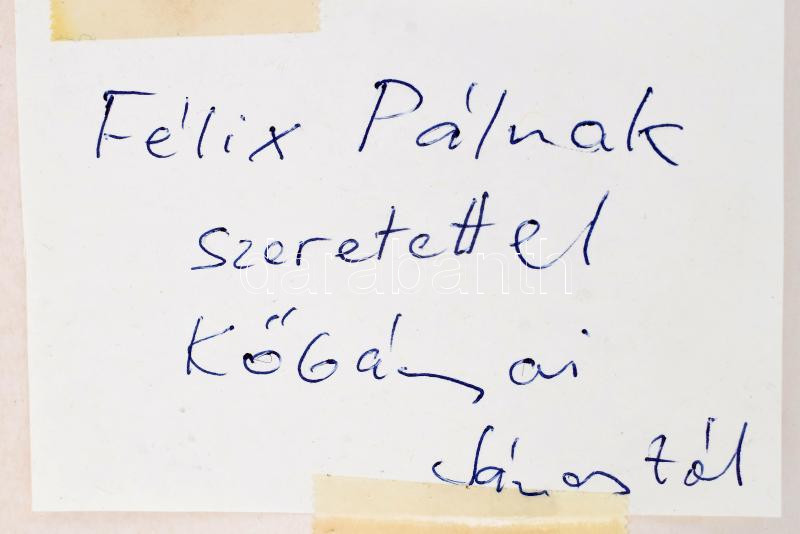 Félix Pálnak
szeretettel
darabanth
Kőbányai
Jánostól